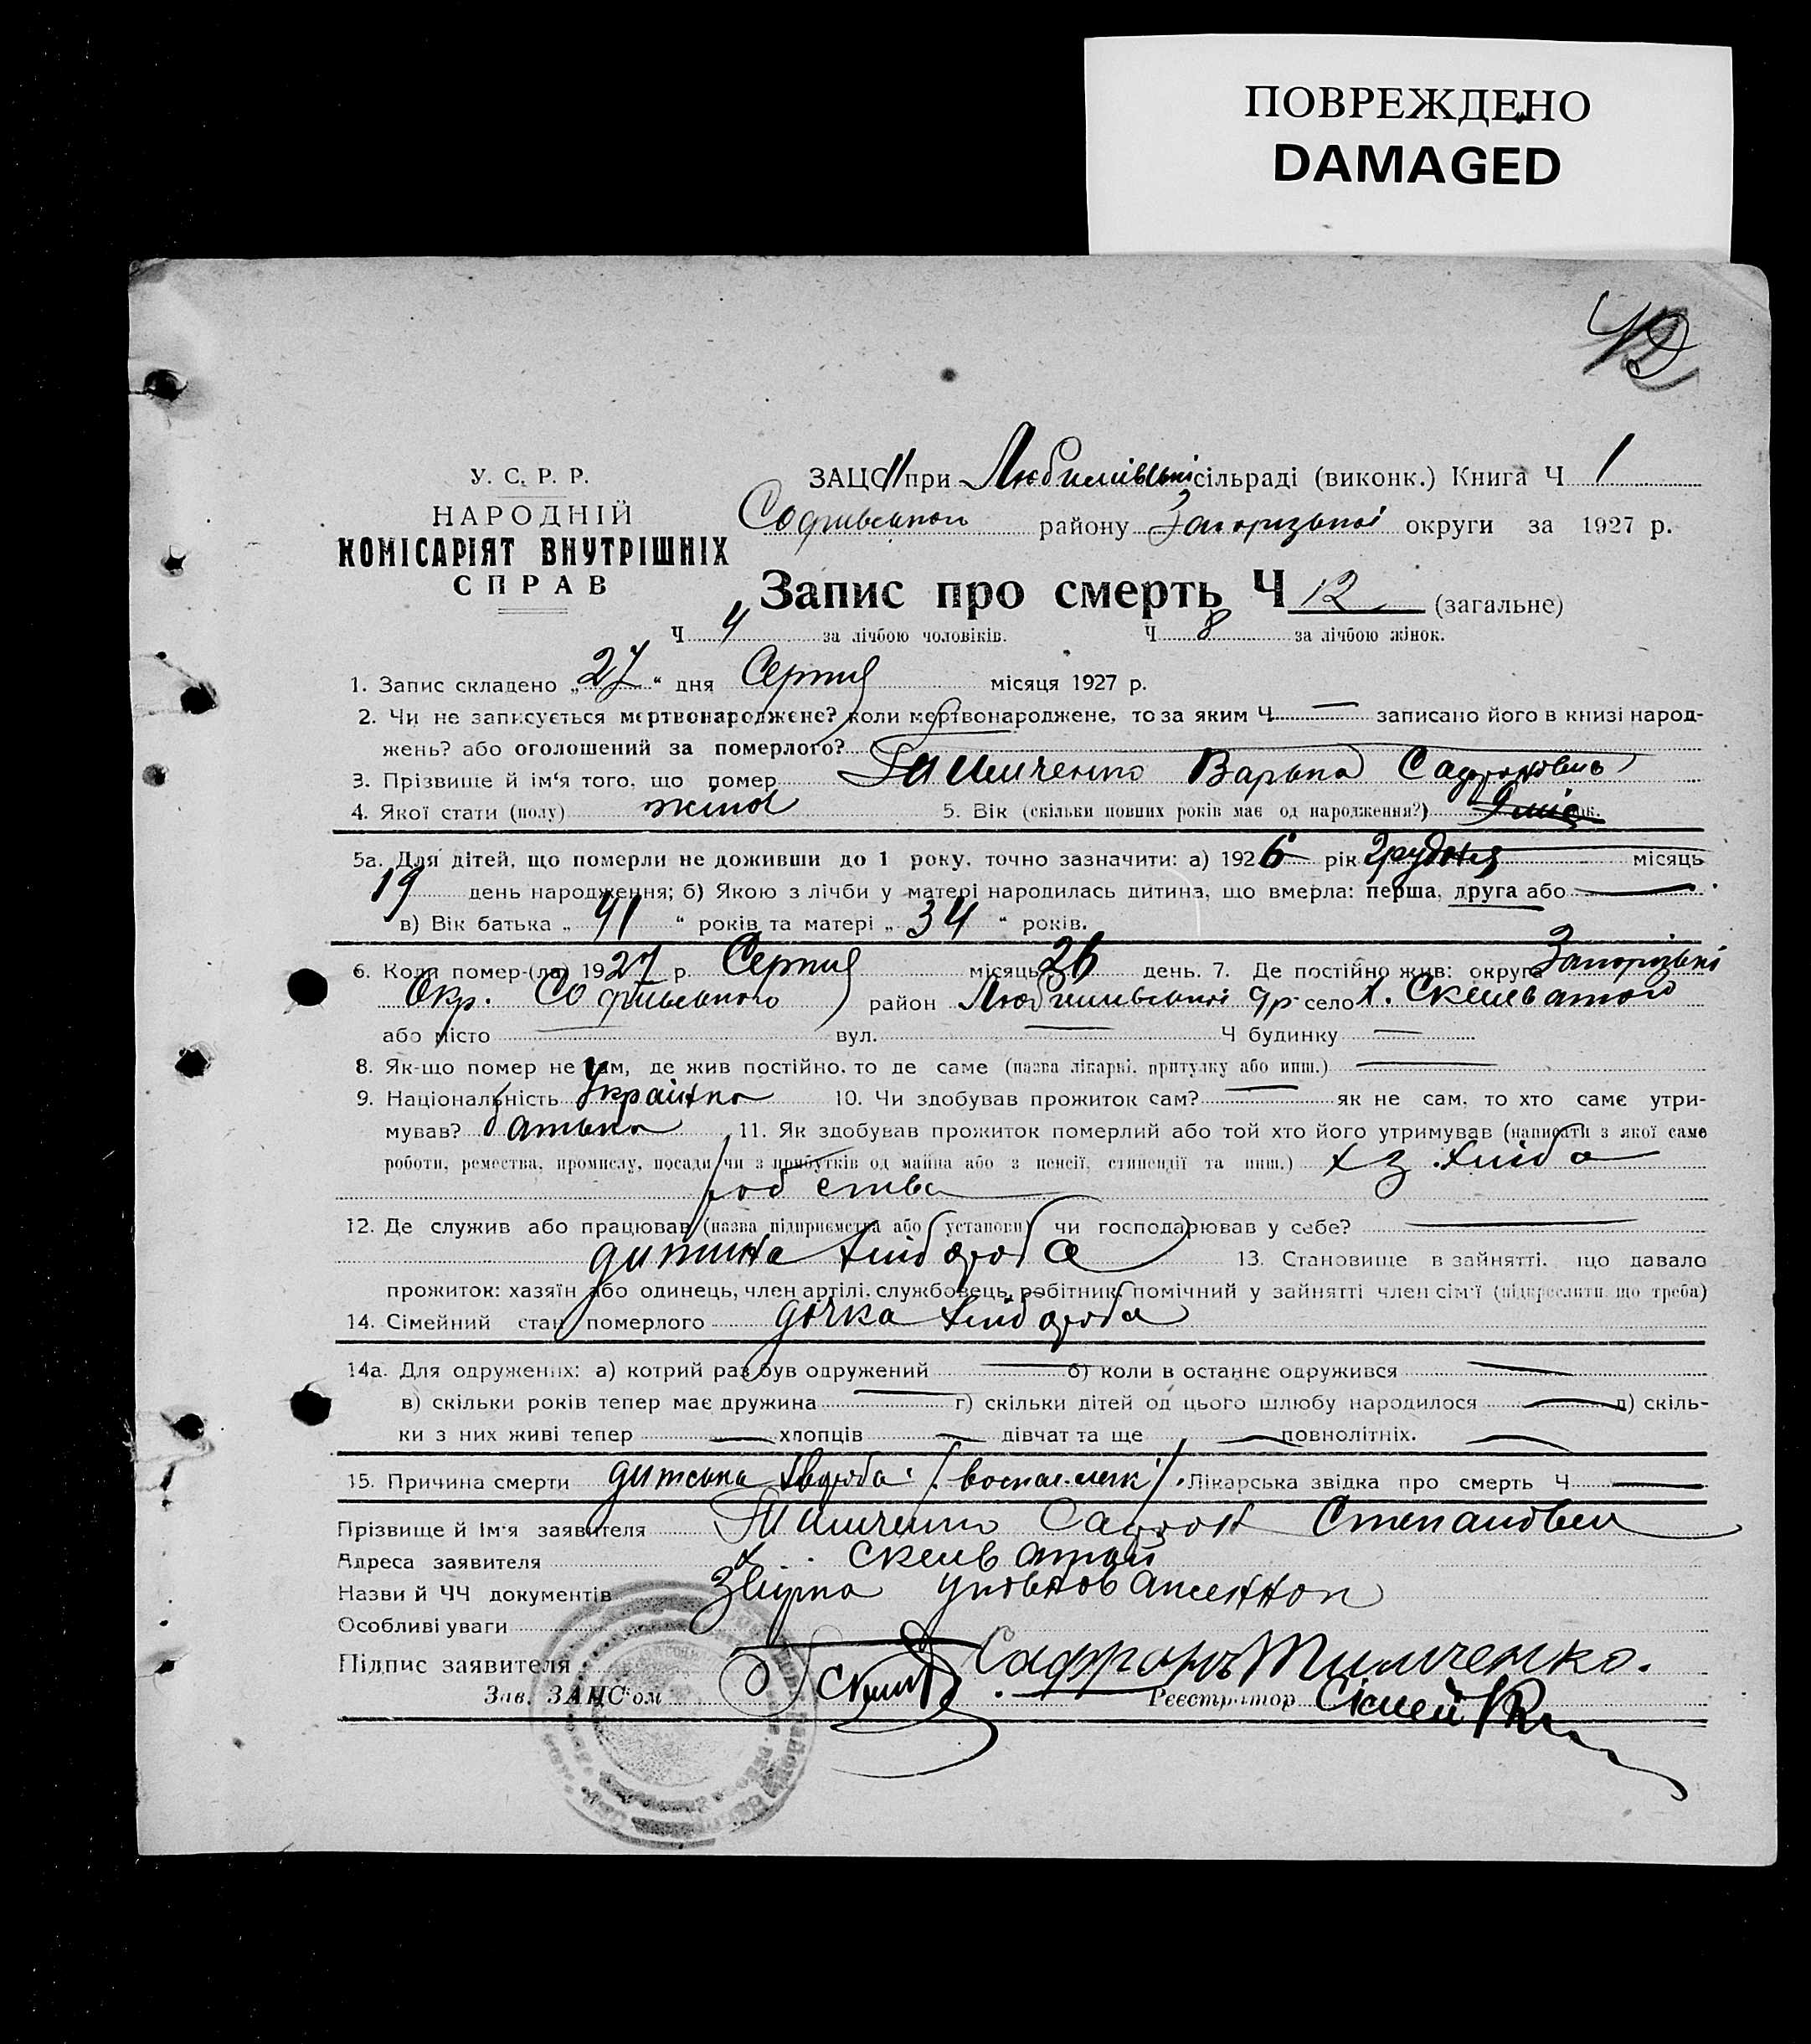 ПОВРЕЖДЕНО
DAMAGED
42
У. С. Р. Р.
НАРОДНІЙ
КОМІСАРІЯТ ВНУТРІШНІХ
СПРАВ
ЗАЦС при Любимівській сільраді (виконк.) Книга Ч 1
Софиівського району Запорізької округи за 1927 р.
Запис про смерть Ч 12 (загальне)
Ч 4 за лічбою чоловіків. Ч 8 за лічбою жінок.
1. Запис складено „27“ дня Серпня місяця 1927 р.
2. Чи не записується мертвонароджене? коли мертвонароджене, то за яким Ч — записано його в книзі народ-
жень? або оголошений за померлого?
3. Прізвище й ім'я того, що помер Тимченко Варька Сафронівна
4. Якої стати (полу) жіноч 5. Вік (скільки повних років має од народження?) 9 міс рок.
5а. Для дітей, що померли не доживши до 1 року, точно зазначити: а) 1926 рік Грудня місяць
19 день народження; б) Якою з лічби у матері народилась дитина, що вмерла: перша, друга або —
в) Вік батька „41“ років та матері „34“ років.
6. Коли помер-(ла) 1927 р. Серпня місяць 26 день. 7. Де постійно жив: округа Запорізькі
Окр. Софиівського район Любимівської село х. Скелеватого
або місто — вул. — Ч будинку —
8. Як-що помер не там, де жив постійно, то де саме (назва лікарні, притулку або инш.) —
9. Національність Українка 10. Чи здобував прожиток сам? — як не сам, то хто саме утри-
мував? батько 11. Як здобував прожиток померлий або той хто його утримував (написати з якої саме
роботи, ремества, промислу, посади чи з прибутків од майна або з пенсії, стипендії та инш.) з хліба
робства
12. Де служив або працював (назва підприємства або установи) чи господарював у себе? —
дитина хлібороба 13. Становище в зайнятті, що давало
прожиток: хазяїн або одинець, член артілі, службовець, робітник, помічний у зайнятті член сім'ї (підкреслити що треба)
14. Сімейний стан померлого дочка хлібороба
14а. Для одружених: а) котрий раз був одружений — б) коли в останнє одружився —
в) скільки років тепер має дружина — г) скільки дітей од цього шлюбу народилося — д) скіль-
ки з них живі тепер — хлопців — дівчат та ще — повнолітніх. —
15. Причина смерти дитська хвороба: Лікарська звідка про смерть Ч —
Прізвище й ім'я заявителя Тимченко Сафрон Степанович
Адреса заявителя х. Скелеватой
Назви й ЧЧ документів Звірка уповноваженноп
Особливі уваги
Підпис заявителя Сафронъ Тимченко.
Зав. ЗАЦС'ом Реєстратор